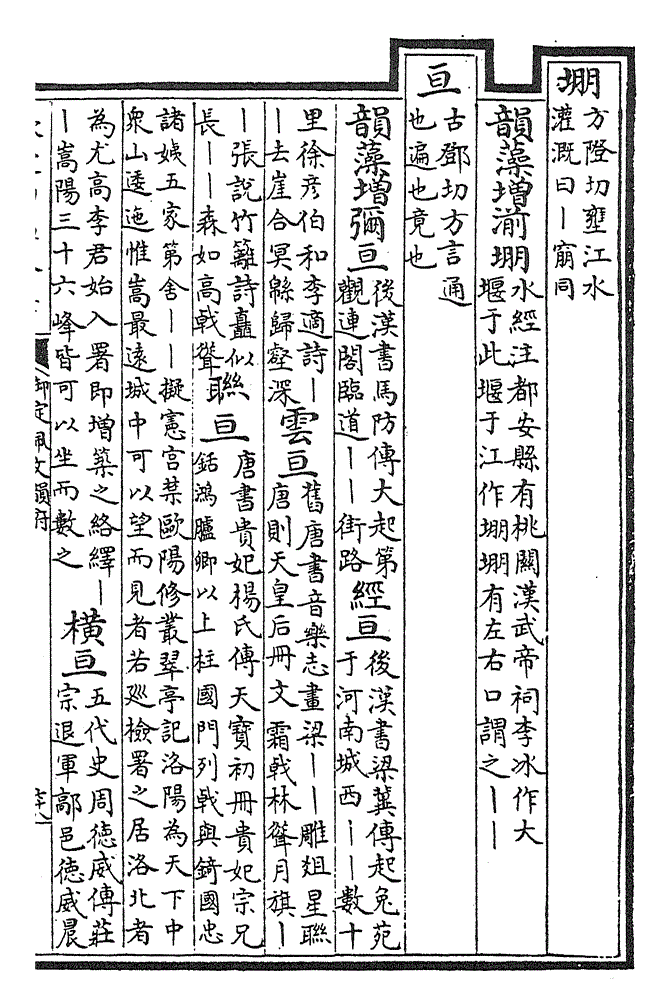 堋
方隥切壅江水
灌溉曰丨同
韻藻增湔堋
水經注都安縣有桃關漢武帝祠李冰作大
堰于此堰于江作堋堋有左右口謂之丨丨
亘
古鄧切方言通
也遍也竟也
韻藻增彌亘
後漢書馬防傳大起第
觀連閣臨道丨丨街路
經亘
後漢書梁冀傳起兔苑
于河南城西丨丨數十
里徐彦伯和李適詩丨
丨去崖合冥緜歸壑深
雲亘
舊唐書音樂志畫梁丨丨雕俎星聯
唐則天皇后冊文霜戟林聳月旗丨
丨張說竹籬詩矗似
長丨丨森如高戟聳
聯亘
唐書貴妃楊氏傳天寶初冊貴妃宗兄
銛鴻臚卿以上柱國門列戟與錡國忠
諸姨五家第舍丨丨擬憲宫禁歐陽修叢翠亭記洛陽為天下中
衆山逶迤惟嵩最遠城中可以望而見者若廵檢署之居洛北者
為尤高李君始入署即增築之絡繹丨
丨嵩陽三十六峰皆可以坐而數之
橫亘
五代史周德威傳莊
宗退軍鄗邑德威晨
御定佩文韻府